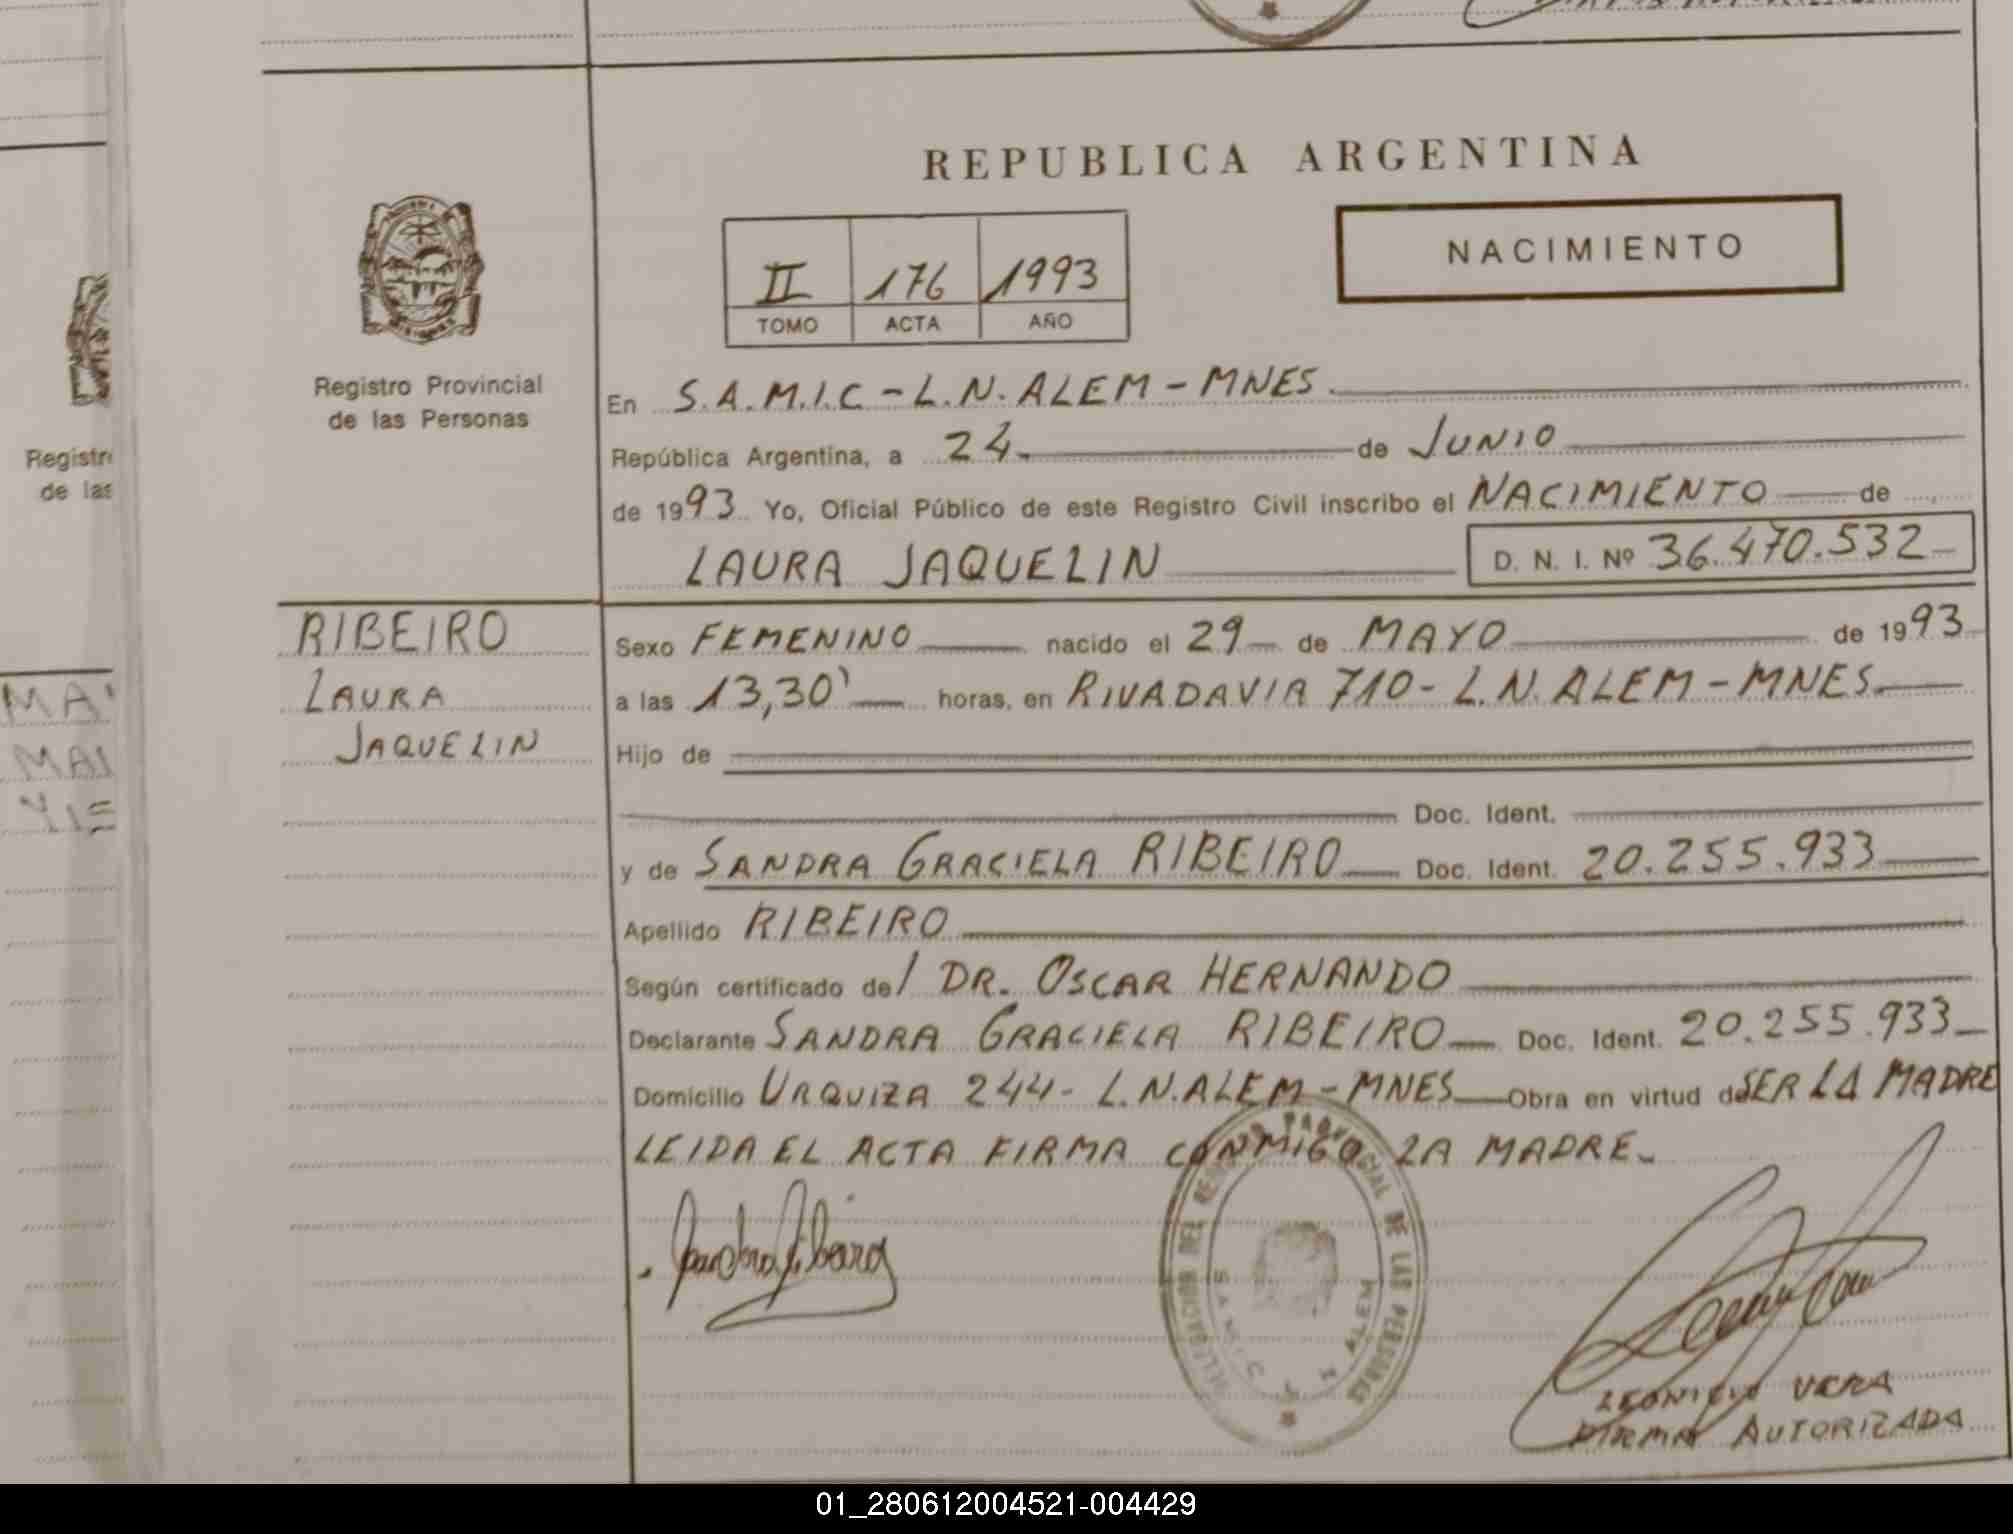 REPUBLICA ARGENTINA
NACIMIENTO
II 176 1993
TOMO ACTA AÑO
Registro Provincial
de las Personas
En S.A.M.I.C - L.N. ALEM - MNES
República Argentina, a 24 de JUNIO
de 1993 Yo, Oficial Público de este Registro Civil inscribo el NACIMIENTO de
LAURA JAQUELIN D. N. I. Nº 36.470.532
RIBEIRO
LAURA
JAQUELIN
Sexo FEMENINO nacido el 29 de MAYO de 1993
a las 13,30' horas, en RIVADAVIA 710 - L.N. ALEM - MNES
Hijo de
Doc. Ident.
y de SANDRA GRACIELA RIBEIRO Doc. Ident. 20.255.933
Apellido RIBEIRO
Según certificado de/ DR. OSCAR HERNANDO
Declarante SANDRA GRACIELA RIBEIRO Doc. Ident. 20.255.933
Domicilio URQUIZA 244 - L.N. ALEM - MNES Obra en virtud de SER LA MADRE
LEIDA EL ACTA FIRMA CONMIGO LA MADRE.
DELEGACION DEL REGISTRO PROVINCIAL DE LAS PERSONAS
ALEM
VERA
FIRMA AUTORIZADA
Registr
de las
MA
MAI
01_280612004521-004429